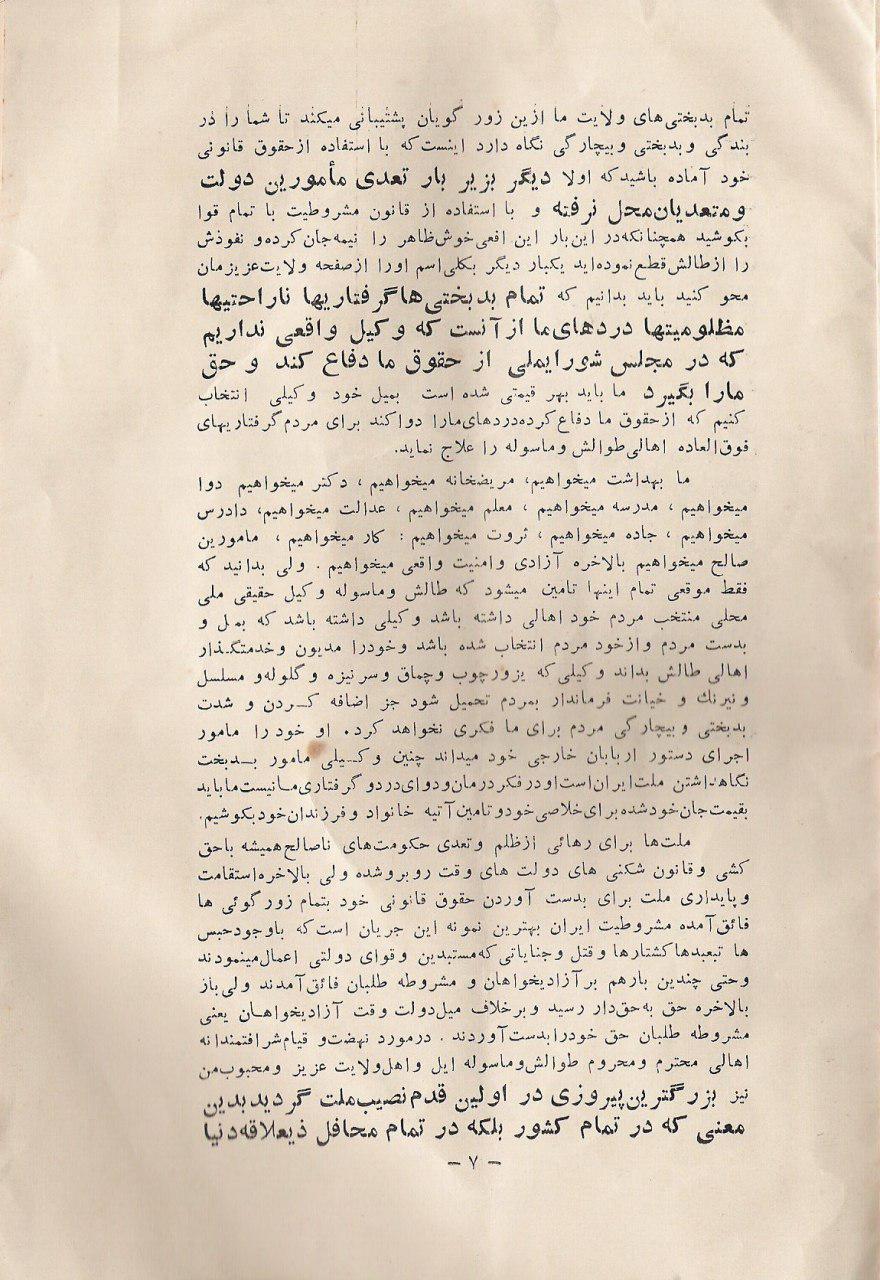 تمام بدبختی‌های ولایت ما ازین زور گویان پشتیبانی میکند تا شما را در
بندگی وبدبختی وبیچارگی نگاه دارد اینست که با استفاده ازحقوق قانونی
خود آماده باشید که اولا دیگر بزیر بار تعدی مأمورین دولت
ومتعدیان محل نرفته و با استفاده از قانون مشروطیت با تمام قوا
بکوشید همچنانکه در این بار این افعی خوش ظاهر را نیمه جان کرده و نفوذش
را ازطالش قطع نموده اید یکبار دیگر بکلی اسم اورا ازصفحه ولایت عزیزمان
محو کنید باید بدانیم که تمام بدبختی‌ها گرفتاریها ناراحتیها
مظلومیتها دردهای ما از آنست که وکیل واقعی نداریم
که در مجلس شورایملی از حقوق ما دفاع کند و حق
مارا بگیرد ما باید بهر قیمتی شده است بمیل خود وکیلی انتخاب
کنیم که ازحقوق ما دفاع کرده دردهای مارا دوا کند برای مردم گرفتاریهای
فوق العاده اهالی طوالش وماسوله را علاج نماید.
ما بهداشت میخواهیم، مریضخانه میخواهیم ، دکتر میخواهیم دوا
میخواهیم ، مدرسه میخواهیم ، معلم میخواهیم ، عدالت میخواهیم، دادرس
میخواهیم ، جاده میخواهیم ، ثروت میخواهیم : کار میخواهیم ، مامورین
صالح میخواهیم بالاخره آزادی وامنیت واقعی میخواهیم . ولی بدانید که
فقط موقعی تمام اینها تامین میشود که طالش وماسوله وکیل حقیقی ملی
محلی منتخب مردم خود اهالی داشته باشد وکیلی داشته باشد که بمیل و
بدست مردم وازخود مردم انتخاب شده باشد وخودرا مدیون وخدمتگـذار
اهالی طالش بداند وکیلی که بزورچوب وچماق وسرنیزه و گلوله و مسلسل
و نیرنك و خیانت فرماندار بمردم تحمیل شود جز اضافه کـردن و شدت
بدبختی وبیچارگی مردم برای ما فکری نخواهد کرد. او خودرا مامور
اجرای دستور اربابان خارجی خود میداند چنین وکـیلی مامور بـدبخت
نگاهداشتن ملت ایران است اودرفکردرمان ودوای دردو گرفتاری مـانیست ما باید
بقیمت جان خود شده برای خلاصی خودو تامین آتیه خانواد وفرزندان خودبکوشیم.
ملت‌ها برای رهائی ازظلم وتعدی حکومت‌های ناصالح همیشه باحق
کشی وقانون شکنی های دولت های وقت روبروشده ولی بالاخره استقامت
وپایداری ملت برای بدست آوردن حقوق قانونی خود بتمام زورگوئی ها
فائق آمده مشروطیت ایران بهترین نمونه این جریان است که باوجودحبس
ها تبعبدها کشتارها وقتل وجنایاتی که مستبدین وقوای دولتی اعمال مینمودند
وحتی چندین بارهم برآزادیخواهان و مشروطه طلبان فائق آمدند ولی باز
بالاخره حق به حق دار رسید وبرخلاف میل دولت وقت آزادیخواهـان یعنی
مشروطه طلبان حق خودرا بدست آوردند . درمورد نهضت و قیام شرافتمندانه
اهالی محترم ومحروم طوالش وماسوله ایل واهل ولایت عزیز ومحبوب من
نیز بزرگترین پیروزی در اولین قدم نصیب ملت گردید بدین
معنی که در تمام کشور بلکه در تمام محافل ذیعلاقه دنیا
– ۷ –